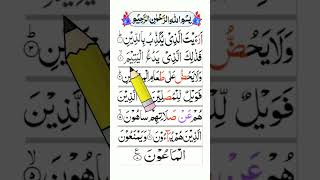 بِسْمِ اللهِ الرَّحْمٰنِ الرَّحِيْمِ
اَرَءَيْتَ الَّذِيْ يُكَذِّبُ بِالدِّيْنِ
فَذٰلِكَ الَّذِيْ يَدُعُّ الْيَتِيْمَ ۙ۲
وَلَا يَحُضُّ عَلٰى طَعَامِ
فَوَيْلٌ لِّلْمُصَلِّيْنَ الَّذِيْنَ
هُمْ عَنْ صَلَاتِهِمْ سَاهُوْنَ ۙ۵
الَّذِيْنَ هُمْ يُرَآءُوْنَ وَيَمْنَعُوْنَ
الْمَاعُوْنَ